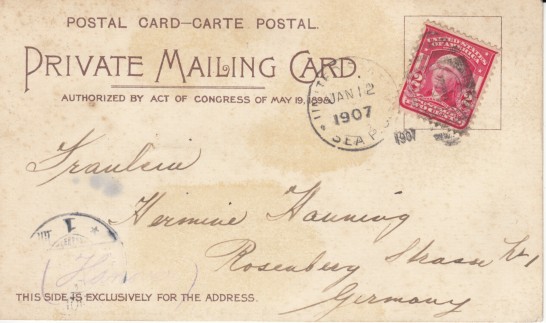 POSTAL CARD—CARTE POSTAL.
PRIVATE MAILING CARD.
AUTHORIZED BY ACT OF CONGRESS OF MAY 19, 1898.
UNITED STATES
OF AMERICA
JAN 12
1907
SEA P
1907
Fraulein
Hermine Hanning
Rosenberg Strasse No 1
Germany
THIS SIDE IS EXCLUSIVELY FOR THE ADDRESS.